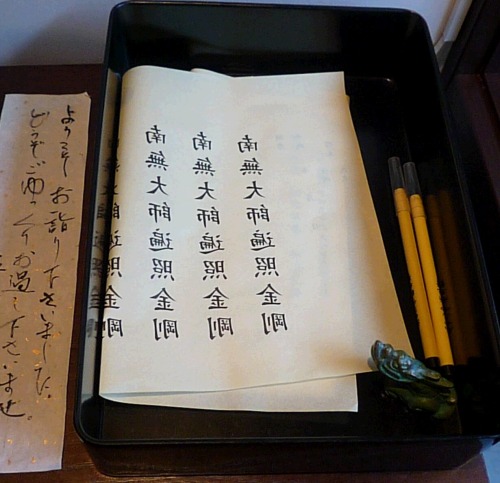 南無大師遍照金剛
南無大師遍照金剛
南無大師遍照金剛
南無大師遍照金剛
ようこそお詣り下さいました。
どうぞごゆっくりお過し下さいませ。